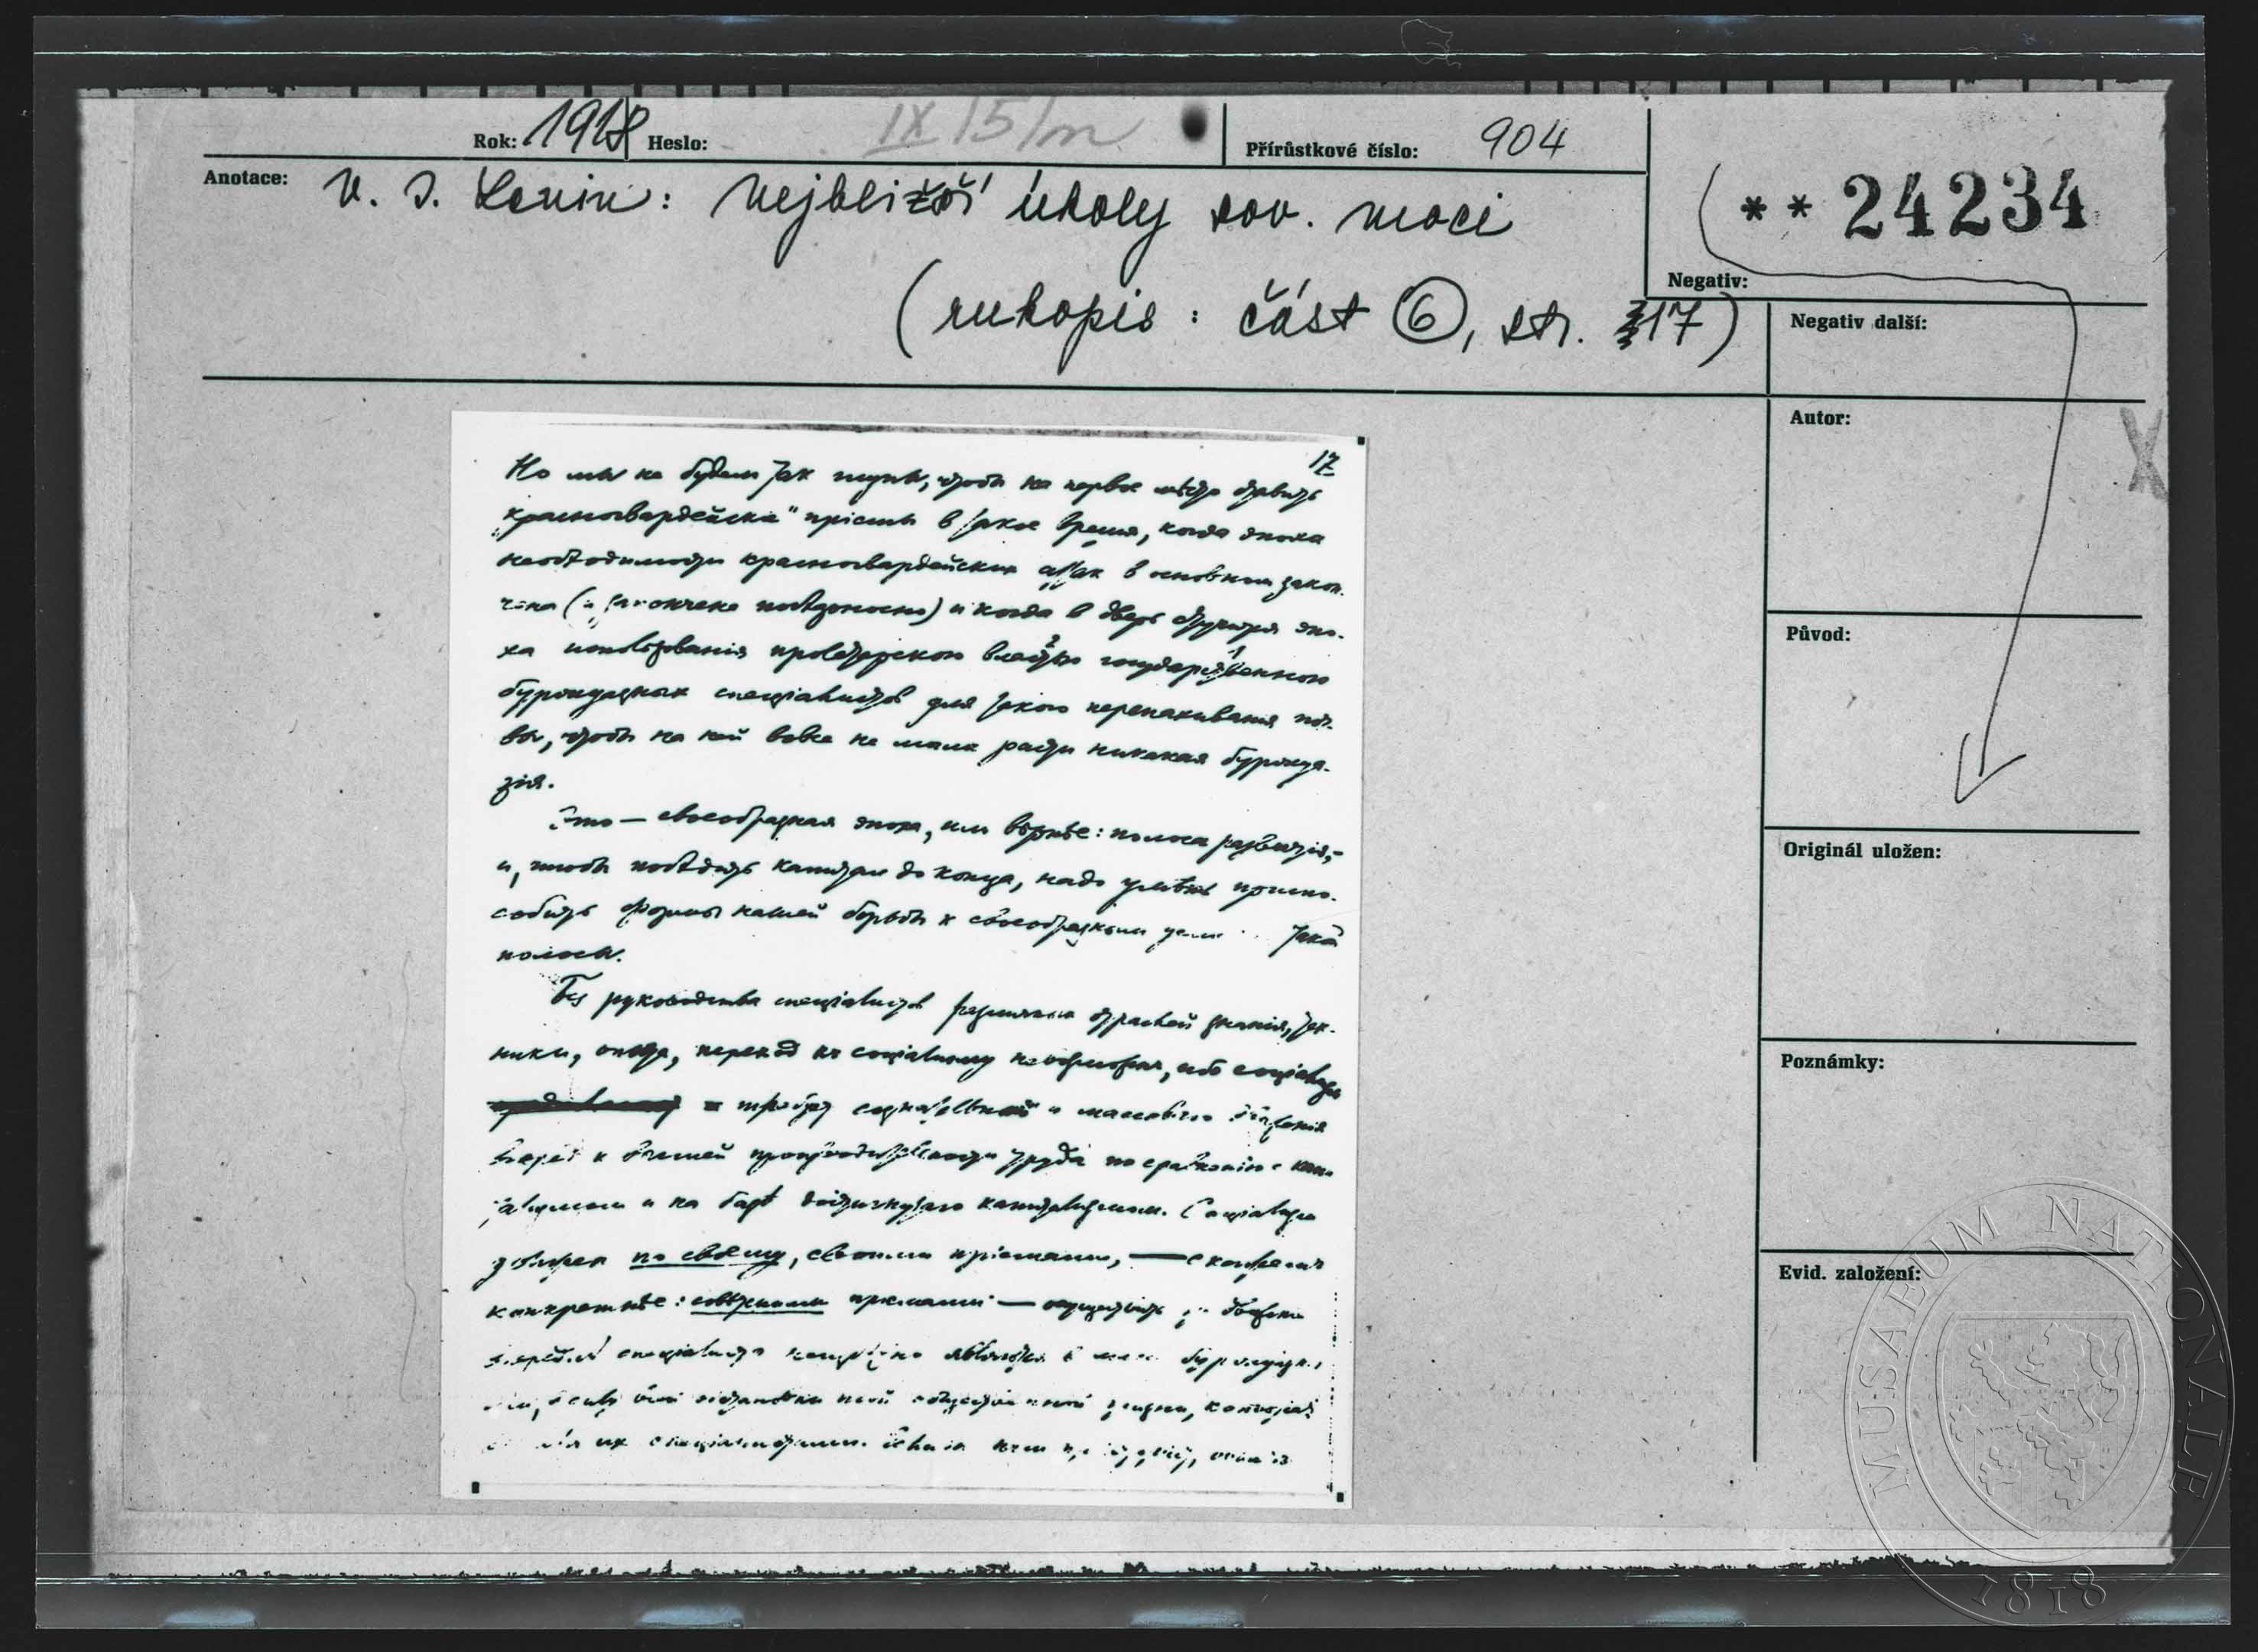 Rok: 1918 Heslo: IX/5/m Přírůstkové číslo: 904
Anotace: V. I. Lenin: Nejbližší úkoly sov. moci
(rukopis: část 6, str. 17)
** 24234
Negativ:
Negativ další:
Autor:
Původ:
Originál uložen:
Poznámky:
Evid. založení:
17
Но мы не будем так глупы, чтобы на первое мѣсто ставить
„красногвардейские" пріемы в такое время, когда эпоха
необходимости красногвардейских атак в основном закон-
чена (и закончена победоносно) и когда в дверь стучится эпо-
ха использованія пролетарскою властью государственною
буржуазных спеціалистов для такого перепахивания поч-
вы, чтобы на ней вовсе не могла расти никакая буржуа-
зія.
Это — своеобразная эпоха, или вѣрнѣе: полоса развитія,-
и, чтобы победить капитал до конца, надо уметь приспо-
собить формы нашей борьбы к своеобразным такой
полосы.
Без руководства спеціалистов различных отраслей знанія, тех-
ники, опыта, переход к соціализму невозможен, ибо соціализм
требует сознательного и массового движенія
вперед к высшей производительности труда по сравнению с капи-
тализмом и на базѣ достигнутаго капитализмом. Соціализм
по своему, своими пріемами, — скажем
конкретнѣе: совѣтскими пріемами —
спеціалисты
обстановки всей общественной жизни,
их спеціалистами.
MUSAEUM NATIONALE
1818